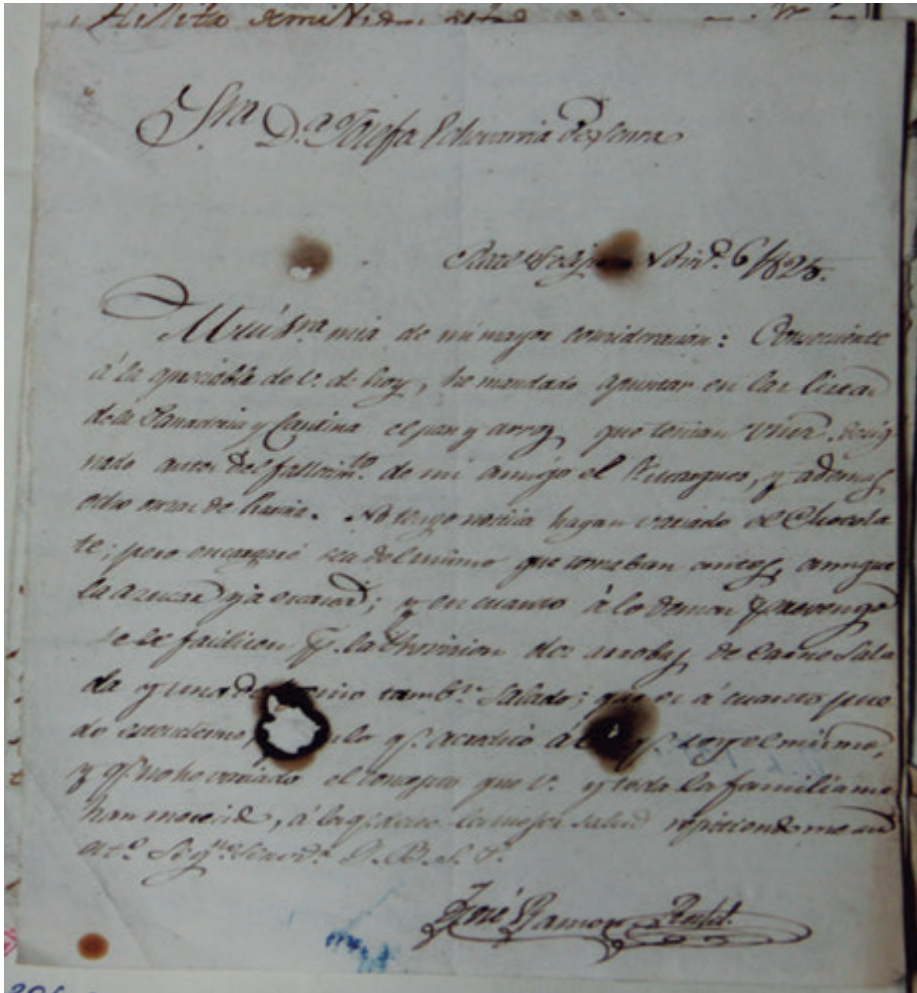 Sra D.a Josefa Echevarria de
Novie. 6/825.
Mui Sra mia de mi mayor consideracion: Consecuente
á la apreciable de V. de hoy, he mandado apuntar en las listas
de la Panaderia y Cantina el pan y arroz, que tenian Vms. desig
nado antes del fallecim.to de mi amigo el Sr. Marques, y ademas
ocho onzas de No tengo noticia hagan variado el Chocola
te; pero encargué sea del mismo que tomaban antes, aunque
la azucar ya escasea; y en cuanto á lo demas prevengo
se le faciliten pr. la Provision dos arrobas de Carne Sala
da y una de tamb.n Salado; que es á cuanto pue
do estenderme, lo qe. acredito á qe. soy el mismo,
y qe. no he variado el concepto que V. y toda la familia me
han merecido, á la qe. deseo la mejor salud repitiendome su
at.o Seg.ro Servid.r Q. B. S. P.
José Ramon Rodil.